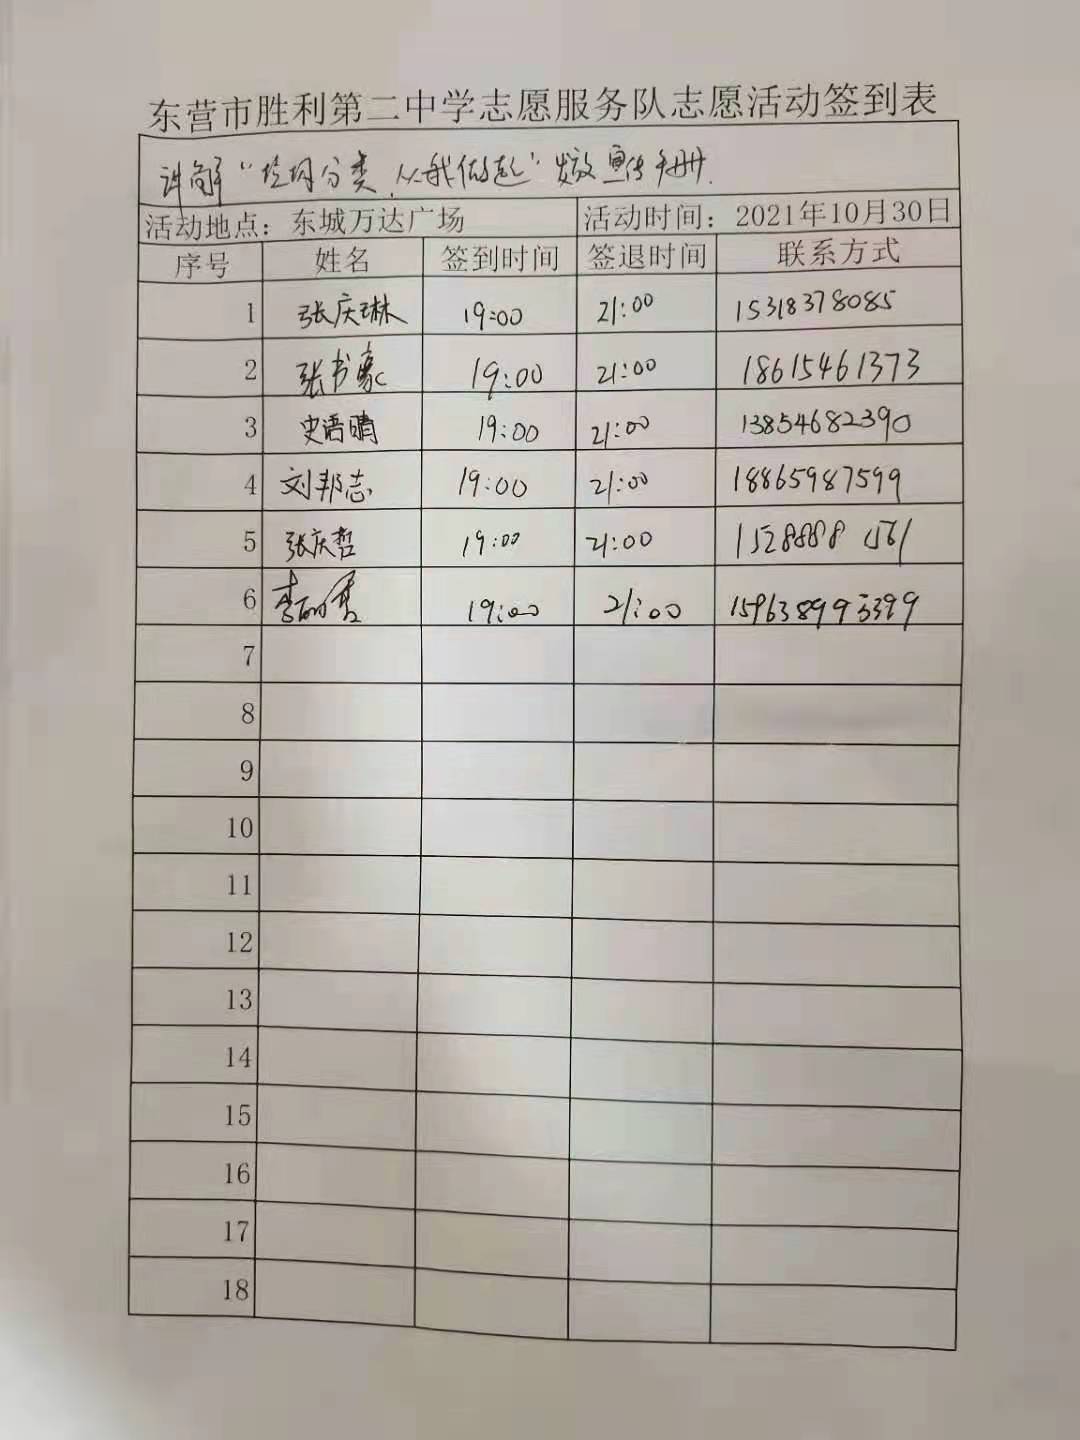 东营市胜利第二中学志愿服务队志愿活动签到表
讲解“垃圾分类,从我做起”发放宣传手册.
活动地点：东城万达广场 活动时间：2021年10月30日
序号 姓名 签到时间 签退时间 联系方式
1 张庆琳 19:00 21:00 15318378085
2 张书豪 19:00 21:00 18615461373
3 史语晴 19:00 21:00 13854682390
4 刘邦志 19:00 21:00 18865987599
5 张庆哲 19:00 21:00
6 19:00 21:00
7
8
9
10
11
12
13
14
15
16
17
18